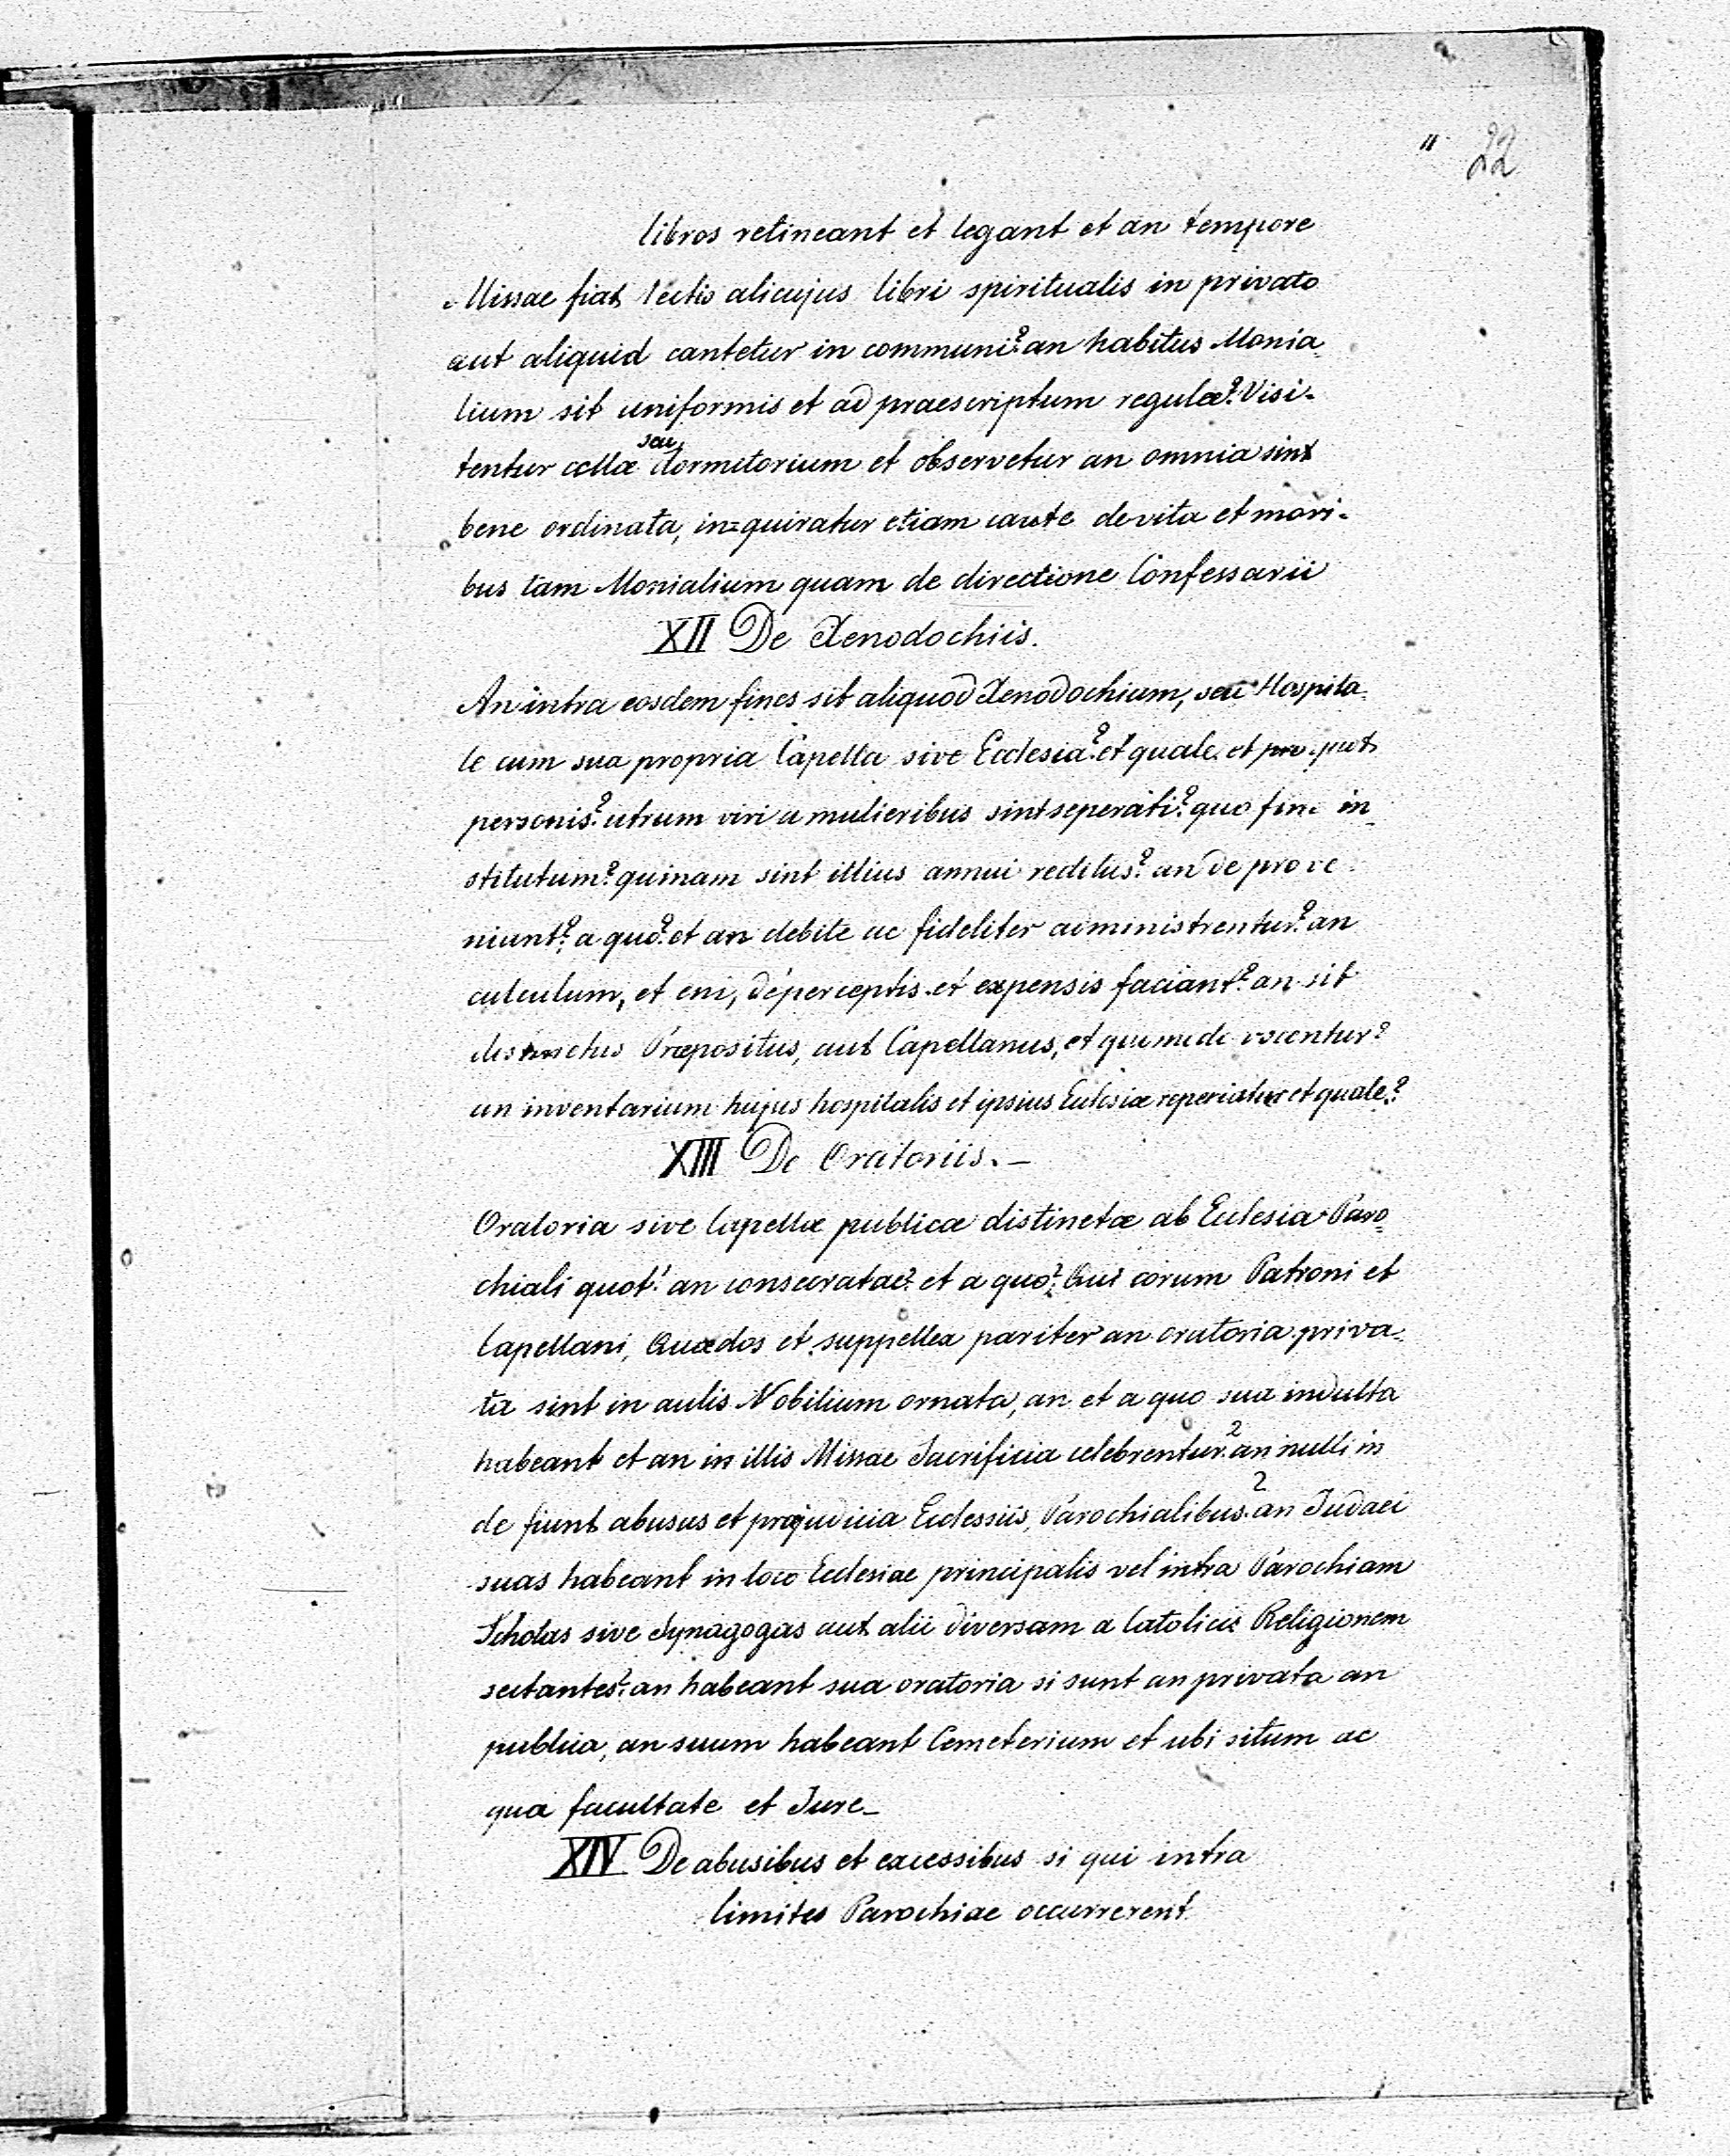 " 22
libros retineant et legant et an tempore
Missae fiat lectio alicujus libri spiritualis in privato
aut aliquid cantetur in communi? an habitus Monia
lium sit uniformis et ad praescriptum regulæ? Visi-
tentur cellæ seu dormitorium et observetur an omnia sint
bene ordinata, in=quiratur etiam caute de vita et mori-
bus tam Monialium quam de directione Confessarii
XII De Xenodochiis.
An intra eosdem fines sit aliquod Xenodochium, seu Hospita-
le cum sua propria Capella sive Ecclesia? et quale et pro quot
personis? utrum viri a mulieribus sint seperati? quo fine in
stitutum? quinam sint illius annui reditus? unde prove
niunt? a quo? et an debite ac fideliter administrentur? an
culculum, et cui, de perceptis et expensis faciant? an sit
distinctus Præpositus, aut Capellanus, et quomodo vocentur?
an inventarium hujus hospitalis et ipsius Eclesiæ reperiatur et quale?
XIII De Oratoriis. —
Oratoria sive Capellæ publicæ distinctæ ab Eclesia Paro
chiali quot? an consecratae? et a quo? Qui eorum Patroni et
Capellani, Quæ dos et suppellex pariter an oratoria priva-
ta sint in aulis Nobilium ornata, an et a quo sua indulta
habeant et an in illis Missae Sacrificia celebrentur? an nulli in
de fiunt abusus et præjudicia Eclessiis, Parochialibus? an Judaei
suas habeant in loco Eclesiae principalis vel intra Parochiam
Scholas sive Synagogas aut alii diversam a Catolicis Religionem
sectantes? an habeant sua oratoria si sunt an privata an
publica, an suum habeant Cemeterium et ubi situm ac
qua facultate et Jure_
XIV De abusibus et excessibus si qui intra
limites Parochiae occurrerent